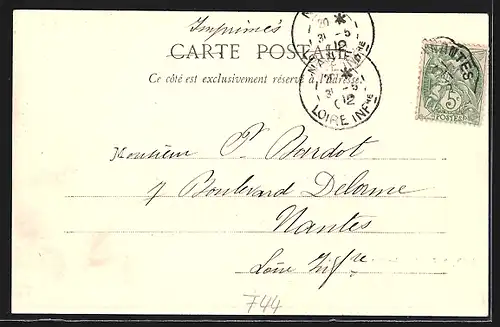 Imprimés
CARTE POSTALE
Ce côté est exclusivement réservé à l'adresse
NANTES
20
31 -5
02
LOIRE INFRE
NANTES
5
POSTES
Monsieur P. Bardot
7 Boulevard Delorme
Nantes
Loire Infre
744